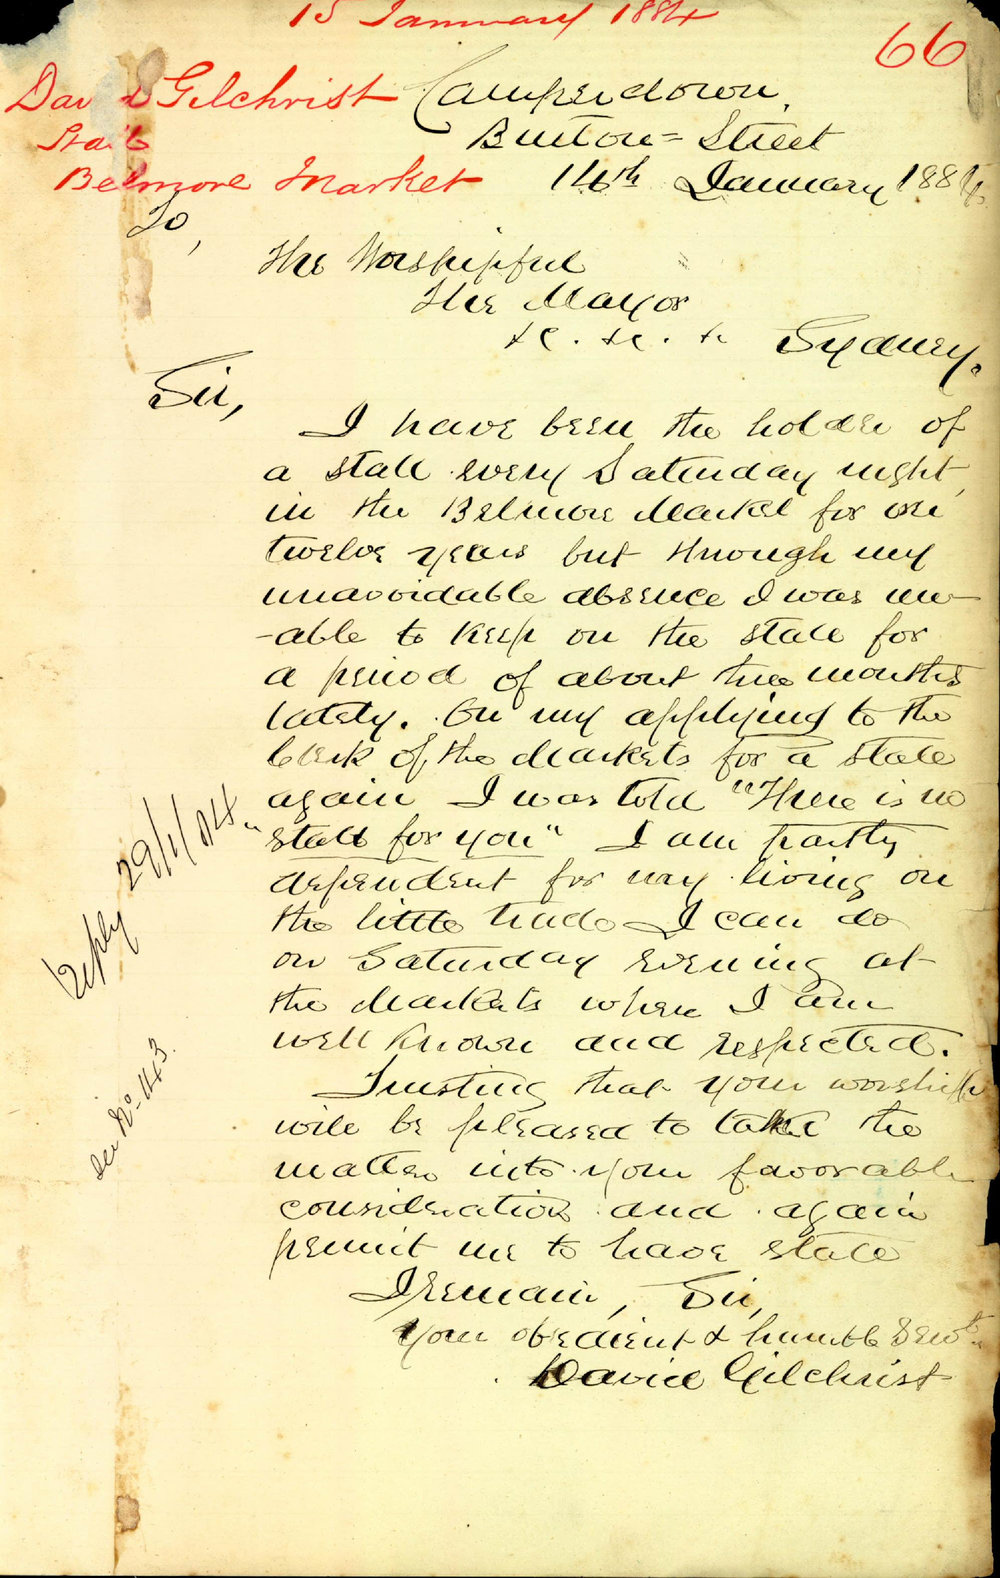 15 January 1884
66
David Gilchrist
Stall
Belmore Market
Camperdown,
Buxton = Street
14th January 1884.
To,
The Worshipful
The Mayor
&c. &c. &c Sydney.
Sir,
I have been the holder of
a stall every Saturday night,
in the Belmore Market for over
twelve years but through my
unavoidable absence I was un-
-able to keep on the stall for
a period of about three months
lately. On my applying to the
Clerk of the Markets for a stall
again I was told "There is no
"stall for you" I am partly
dependent for my living on
the little trade I can do
on Saturday evening at
the Markets where I am
well known and respected.
Trusting that your worship
will be pleased to take the
matter into your favorable
consideration and again
permit me to have stall
I remain, Sir,
Your obedient & humble Servt.
David Gilchrist
Reply 29/1/84.
See No. 143.